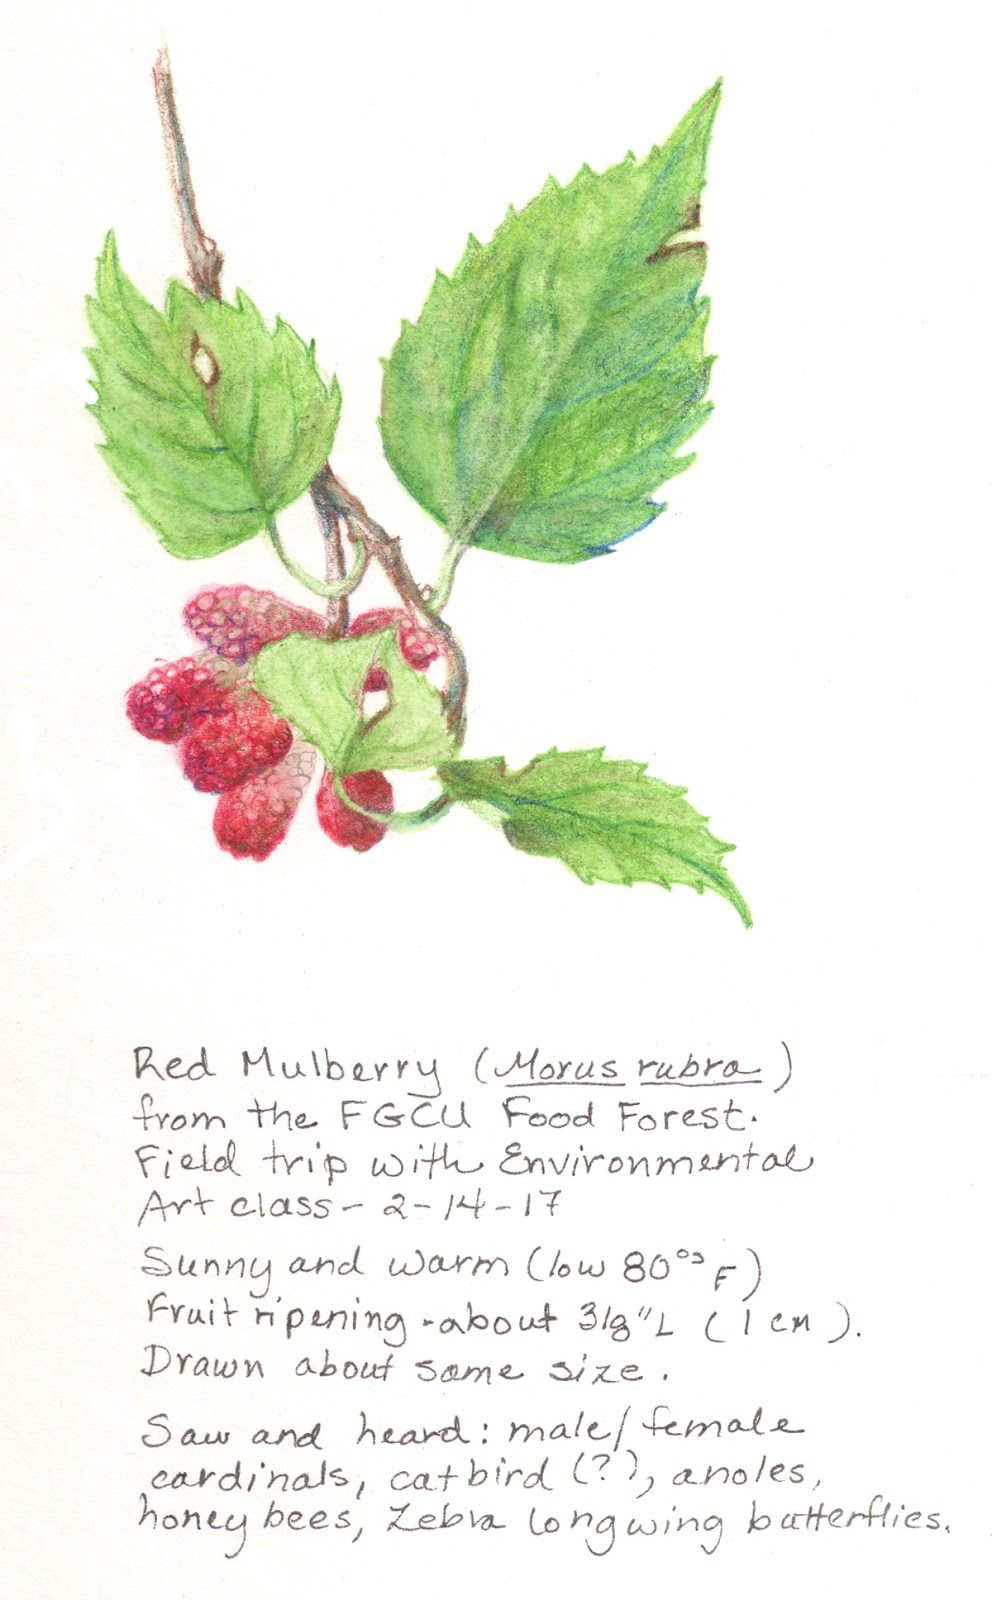 Red Mulberry (Morus rubra)
from the FGCU Food Forest.
Field trip with Environmental
Art class - 2-14-17
Sunny and warm (low 80°s F)
Fruit ripening - about 3/8" L (1 cm).
Drawn about same size.
Saw and heard: male/female
cardinals, catbird (?), anoles,
honey bees, Zebra longwing butterflies.